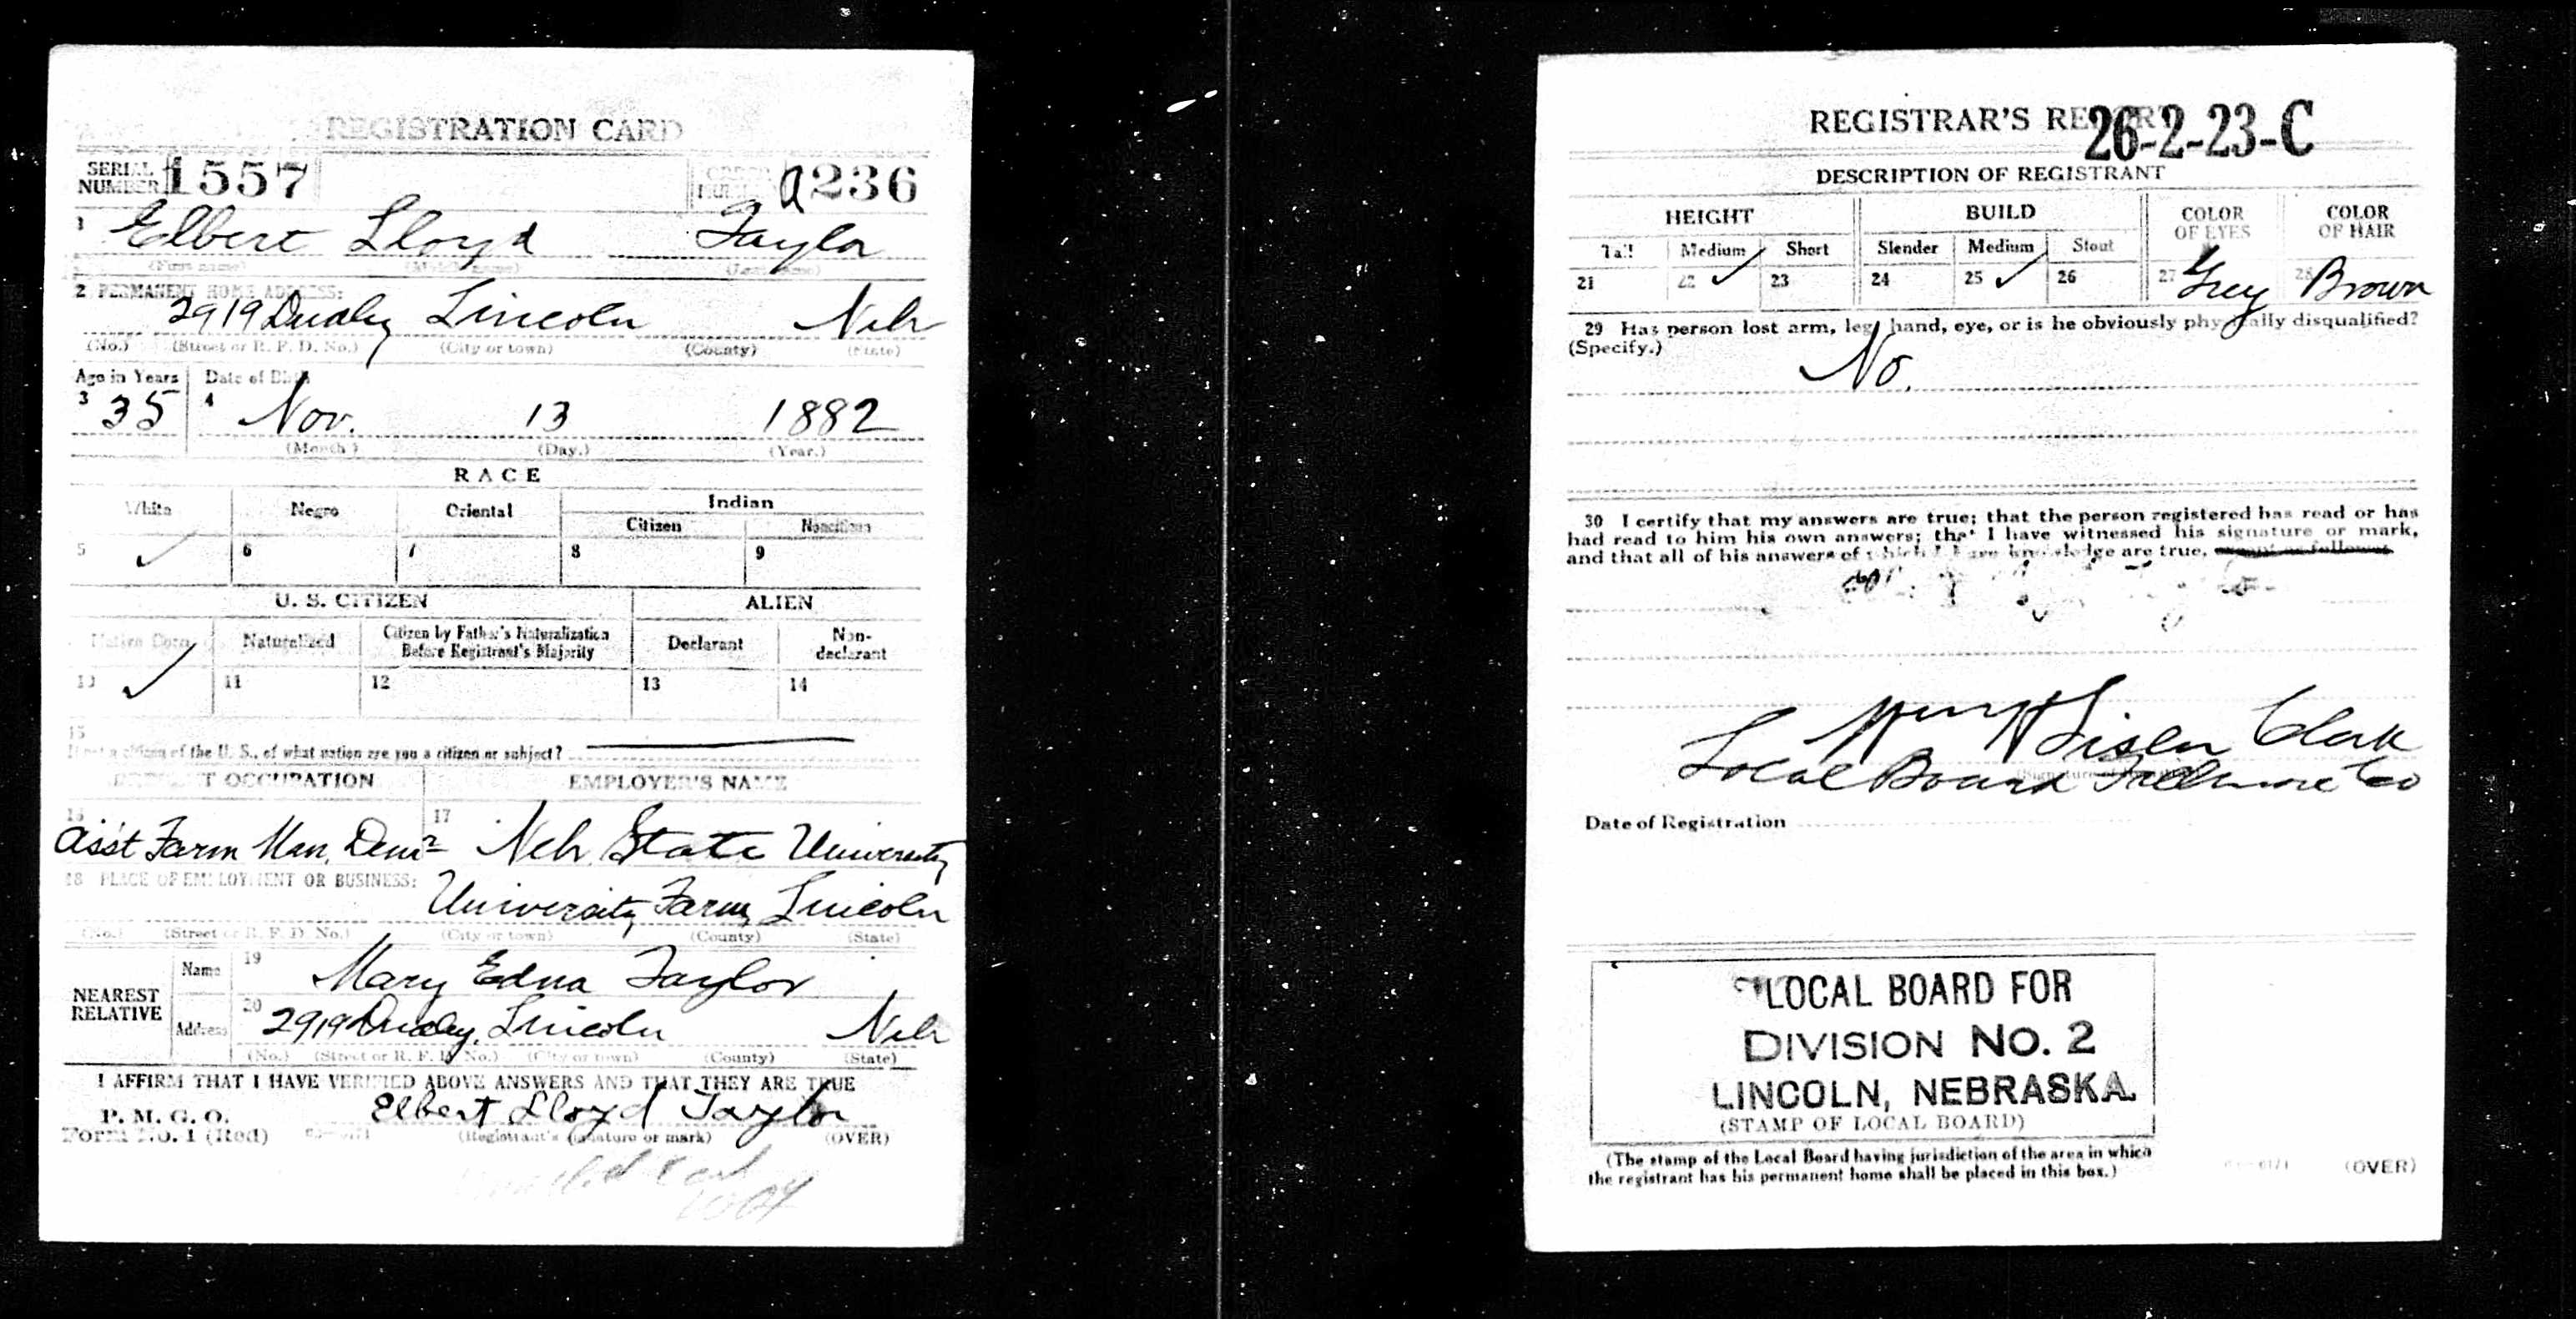 REGISTRATION CARD
SERIAL NUMBER 1557
ORDER NUMBER a236
1 Elbert Lloyd Taylor
(First name) (Middle name) (Last name)
2 PERMANENT HOME ADDRESS:
2919 Dudley Lincoln Neb
(No.) (Street or R. F. D. No.) (City or town) (County) (State)
Age in Years Date of Birth
3 35 4 Nov. 13 1882
(Month.) (Day.) (Year.)
RACE
White Negro Oriental Indian
Citizen Noncitizen
5 ✓ 6 7 8 9
U. S. CITIZEN ALIEN
Native Born Naturalized Citizen by Father's Naturalization Before Registrant's Majority Declarant Non-declarant
10 ✓ 11 12 13 14
15
If not a citizen of the U. S., of what nation are you a citizen or subject?
PRESENT OCCUPATION EMPLOYER'S NAME
16 17
Ass't Farm Man. Dem Neb. State University
18 PLACE OF EMPLOYMENT OR BUSINESS:
University Farm, Lincoln
(No.) (Street or R. F. D. No.) (City or town) (County) (State)
NEAREST RELATIVE
Name 19 Mary Edna Taylor
Address 20 2919 Dudley, Lincoln Neb
(No.) (Street or R. F. D. No.) (City or town) (County) (State)
I AFFIRM THAT I HAVE VERIFIED ABOVE ANSWERS AND THAT THEY ARE TRUE
P. M. G. O.
Form No. 1 (Red) Elbert Lloyd Taylor
(Registrant's signature or mark) (OVER)
REGISTRAR'S REPORT
26-2-23-C
DESCRIPTION OF REGISTRANT
HEIGHT BUILD COLOR OF EYES COLOR OF HAIR
Tall Medium Short Slender Medium Stout
21 22 ✓ 23 24 25 ✓ 26 27 Grey 28 Brown
29 Has person lost arm, leg, hand, eye, or is he obviously physically disqualified?
(Specify.)
No.
30 I certify that my answers are true; that the person registered has read or has
had read to him his own answers; that I have witnessed his signature or mark,
and that all of his answers of which I have knowledge are true, except as follows:
Clerk
Local Board Fillmore Co
Date of Registration
LOCAL BOARD FOR
DIVISION NO. 2
LINCOLN, NEBRASKA.
(STAMP OF LOCAL BOARD)
(The stamp of the Local Board having jurisdiction of the area in which
the registrant has his permanent home shall be placed in this box.)
(OVER)